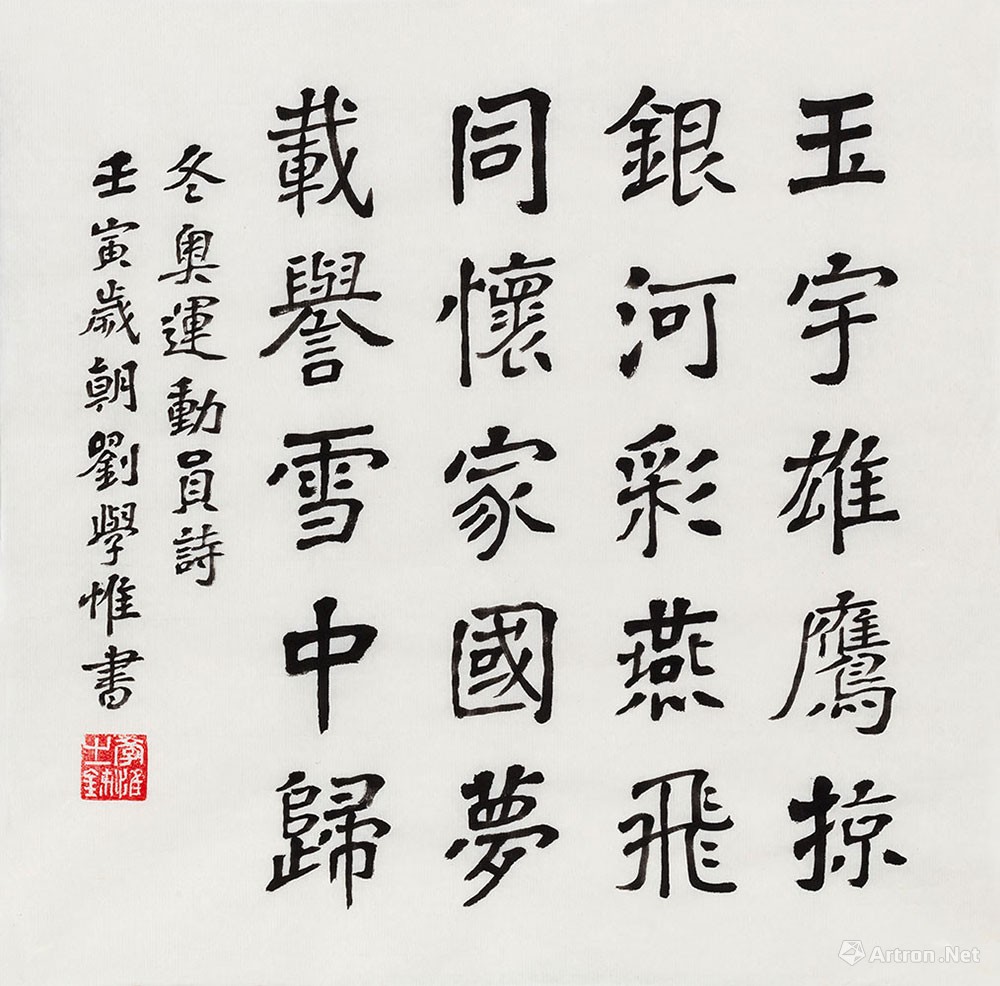 玉宇雄鷹掠
銀河彩燕飛
同懷家國夢
載譽雪中歸
冬奧運動員詩
壬寅歲朝劉學惟書
Artron.Net